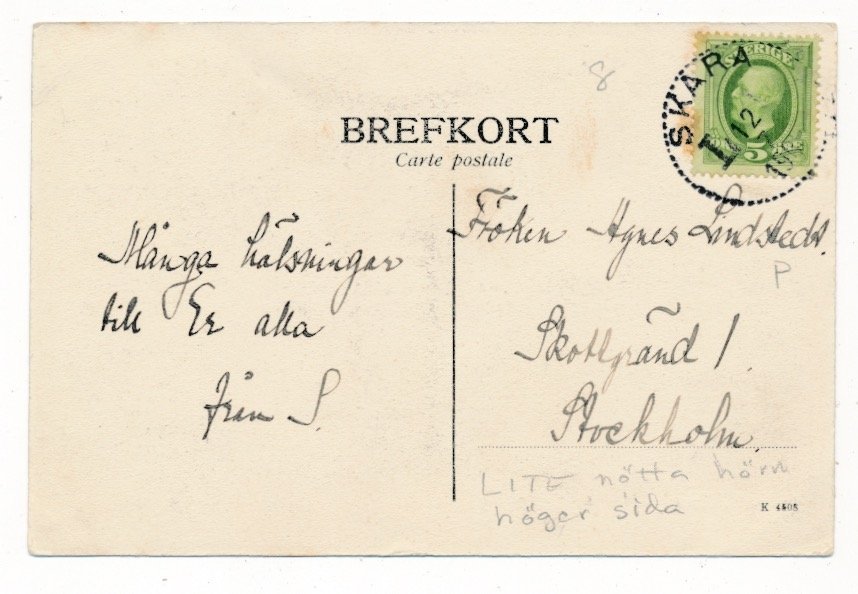 8
SVERIGE
SKARA
12
5
BREFKORT
Carte postale
Många hälsningar
till Er alla
från S.
Fröken Agnes Lindstedt.
P
Skottgränd 1.
Stockholm.
LITE nötta hörn
höger sida